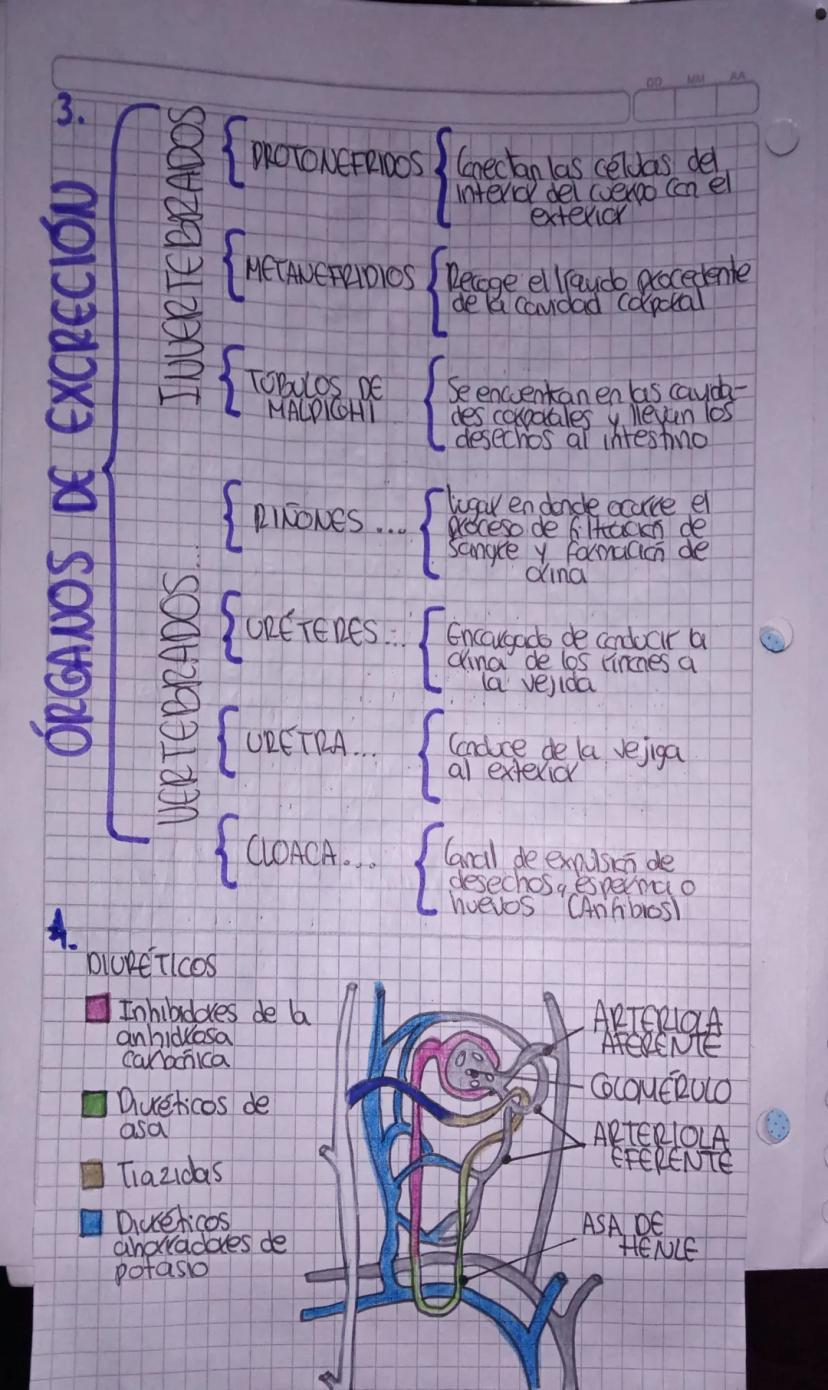 DD MM AA
3.
ÓRGANOS DE EXCRECIÓN
INVERTEBRADOS
PROTONEFRIDOS
Conectan las células del
interior del cuerpo con el
exterior
METANEFRIDIOS
Recoge el líquido procedente
de la cavidad corporal
TÚBULOS DE
MALPIGHI
Se encuentran en las cavida-
des corporales y llevan los
desechos al intestino
VERTEBRADOS...
RIÑONES ....
lugar en donde ocurre el
proceso de filtración de
sangre y formación de
orina
URÉTERES...
Encargado de conducir la
orina de los riñones a
la vejida
URETRA...
Conduce de la vejiga
al exterior
CLOACA...
Canal de expulsión de
desechos, esperma o
huevos (Anfibios)
4.
DIURÉTICOS
Inhibidores de la
anhidrosa
carbónica
Diuréticos de
asa
Tiazidas
Diuréticos
ahorradores de
potasio
ARTERIOLA
AFERENTE
GLOMÉRULO
ARTERIOLA
EFERENTE
ASA DE
HENLE